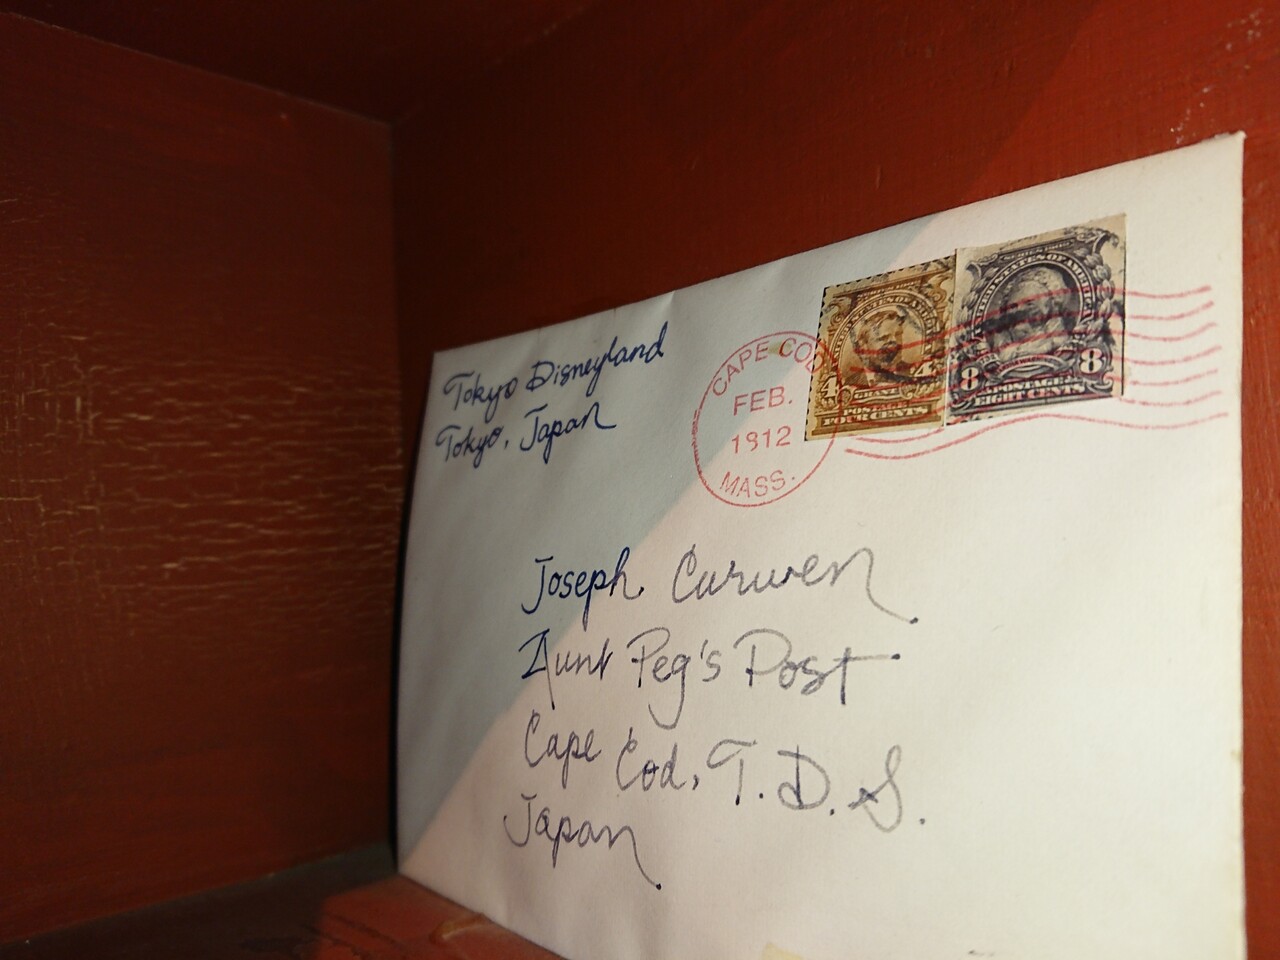 Tokyo Disneyland
Tokyo, Japan
CAPE COD
FEB.
1912
MASS.
UNITED STATES OF AMERICA
4 4
GRANT
POSTAGE
FOUR CENTS
UNITED STATES OF AMERICA
8 8
POSTAGE
EIGHT CENTS
Joseph Curwen
Aunt Peg's Post
Cape Cod, T. D. S.
Japan